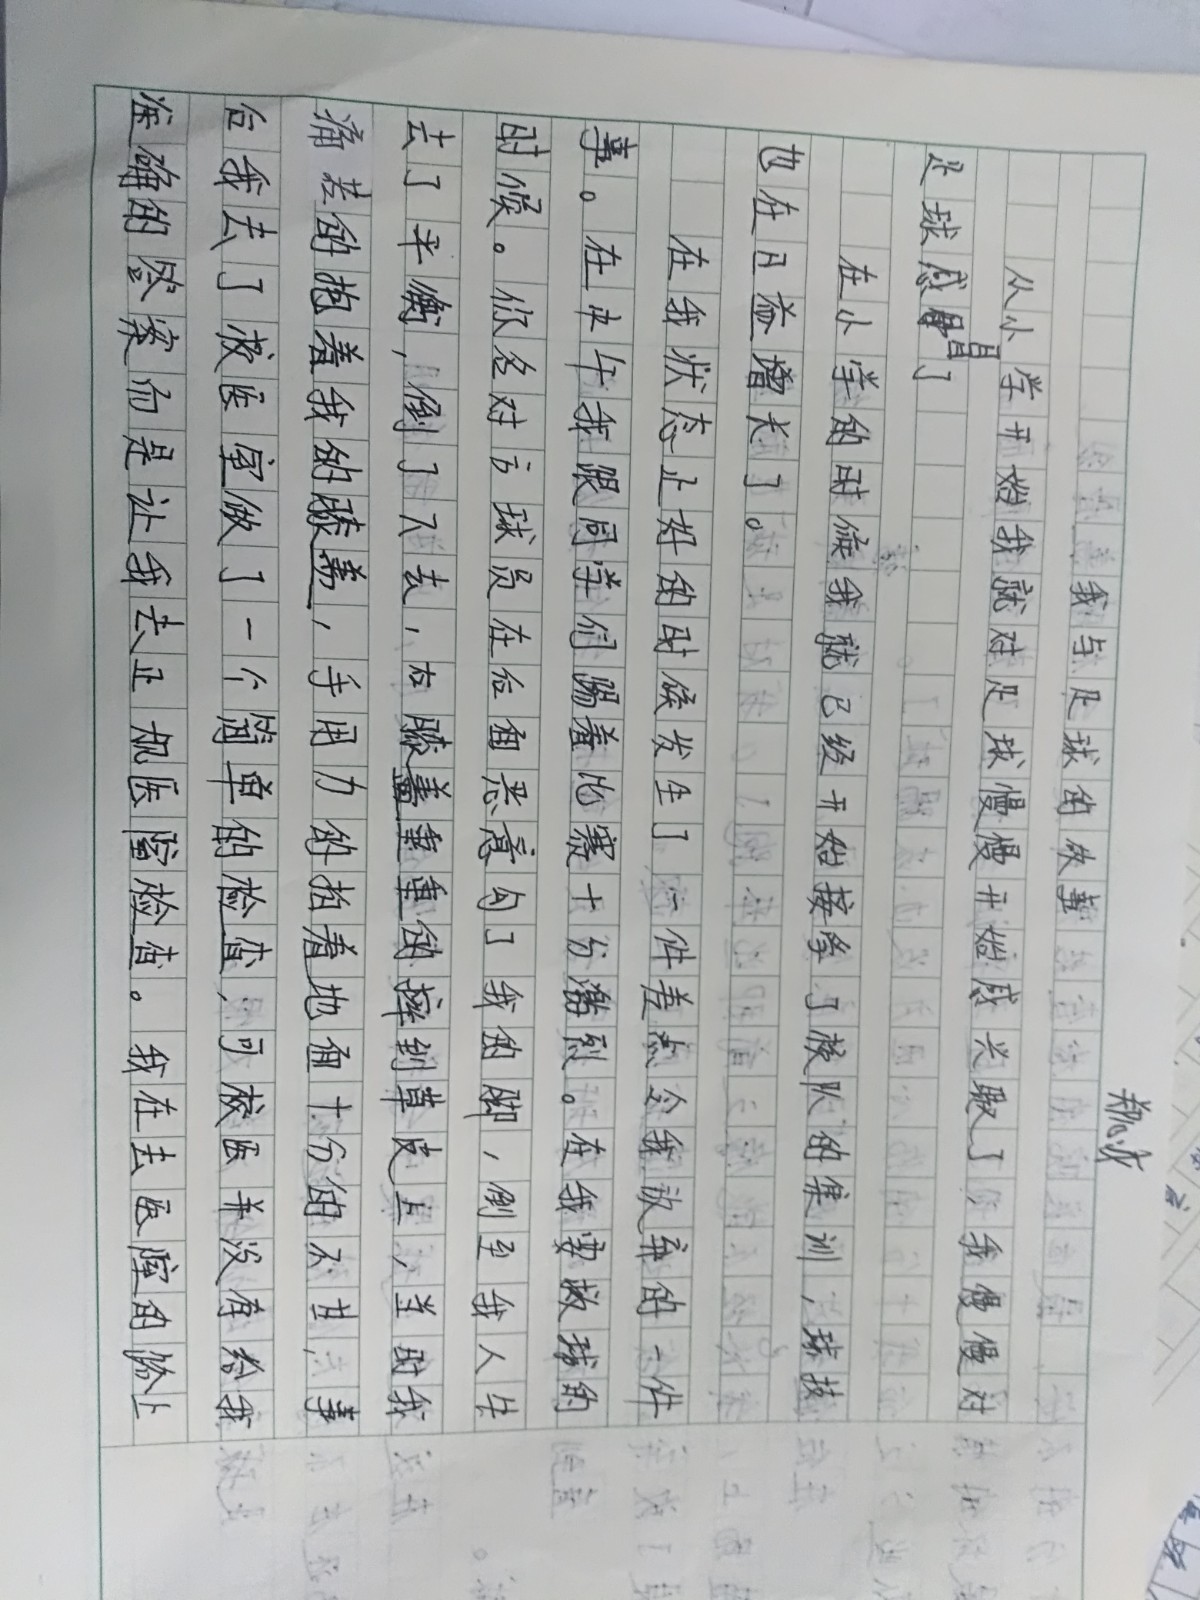 我与足球的故事
从小学开始我就对足球慢慢开始感兴取了,我慢慢对
足球感冒了
在小学的时候我就已经开始接争了校队的集训,球技
也在日益增长了。
在我状态正好的时候发生了一件差点令我放弃的一件
事。在中午我跟同学们踢着比赛十份激烈。在我要救球的
时候。仅名对方球员在后面恶意勾了我的脚,倒至我人失
去了平衡,倒了下去,右膝盖重重的摔到草皮上,当时我
痛苦的抱着我的膝盖,手用力的拍着地面十分的不甘,事
后我去了校医室做了一个简单的检查,可校医并没有给我
准确的答案而是让我去正规医院检查。我在去医院的路上